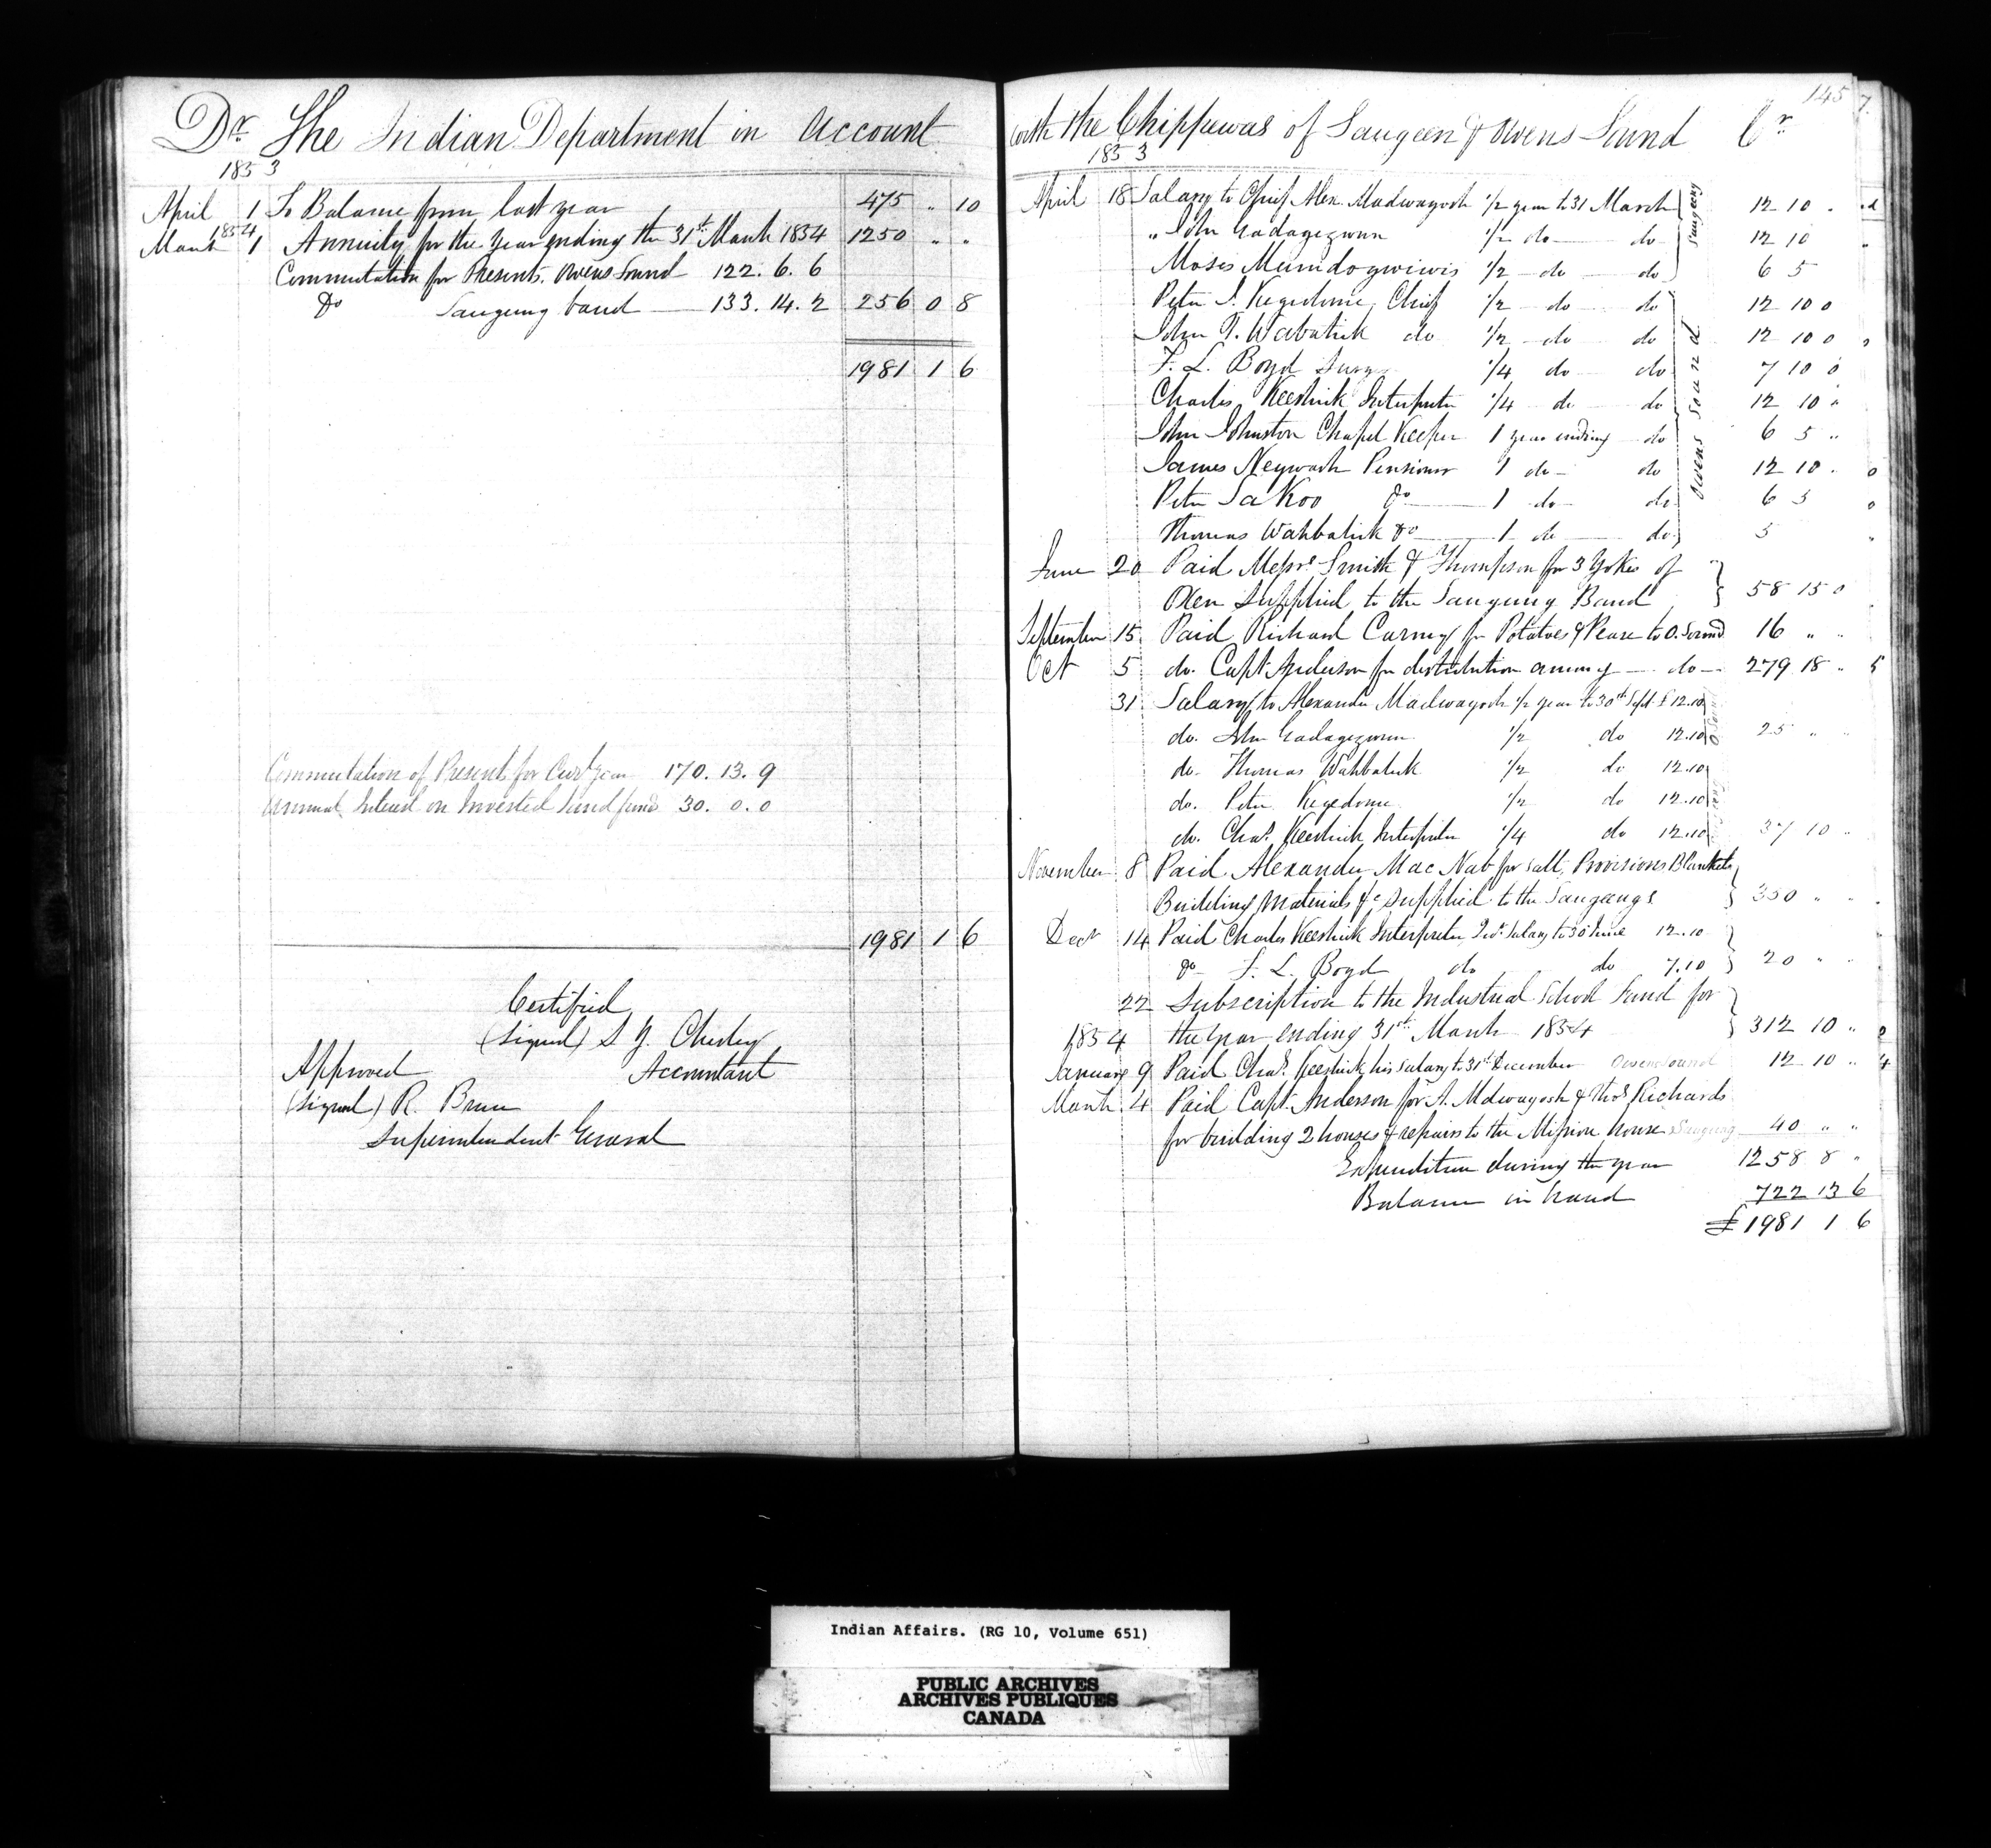 Dr The Indian Department in Account
1853
April 1 To Balance from last year 475 " 10
1854
March 1 Annuity for the Year ending the 31st March 1854 1250 " "
Commutation for Presents. Owens Sound 122. 6. 6
Do Saugeeng band 133. 14. 2 256 0 8
1981 1 6
Commutation of Present for Curt year 170. 13. 9
Annual Interest on Invested fund 30. 0. 0
1981 1 6
Certified
(Signed) S Y. Chesley
Accountant
Approved
(Signed) R. Bruce
Superintendent General
145
with the Chippewas of Saugeen & Owens Sund Cr
1853
April 18 Salary to Chief Alex Madwayosh 1/2 year to 31 March Saugeeng 12 10 "
" John Kadagegwun 1/2 do do 12 10
Moses Mumdogwiwis 1/2 do do 6 5
Peter J. Kegedonce, Chief 1/2 do do 12 10 0
John T. Wabatick do 1/2 do do Owens Sound 12 10 0
F. L. Boyd 1/4 do do 7 10 0
Charles Keeshick Interpreter 1/4 do do 12 10 "
John Johnston Chapel Keeper 1 year ending do 6 5 "
James Neywash Pensioner 1 do do 12 10 "
Peter SaKoo Do 1 do do 6 5
Thomas Wahbatick Do 1 do do 5
June 20 Paid Messrs Smith & Thompson for 3 Yokes of
Oxen Supplied to the Saugeeng Band 58 15 0
September 15 Paid Richard Carney for Potatoes & Pease to O. Sound 16 " "
Oct 5 do. Capt Anderson for distribution among do 279 18 "
31 Salary to Alexander Madwayosh 1/2 year to 30th Sept £12.10
do. John Kadagegwun 1/2 do 12.10 25 " "
do. Thomas Wahbatick 1/2 do 12.10
do. Peter Kegedonce 1/2 do 12.10
do. Chas. Keeshick Interpreter 1/4 do 12.10 37 10 "
November 8 Paid Alexander MacNab for salt, Provisions Blankets
Building Materials &c supplied to the Saugeengs 350 " "
Decr 14 Paid Charles Keeshick Interpreter Qr. Salary to 30 June 12.10
Do F. L. Boyd do do 7.10 20 " "
22 Subscription to the Industrial School Fund for
1854 the year ending 31st March 1854 312 10 "
January 9 Paid Chas. Keeshick his salary to 31st December Owens Sound 12 10 "
March 4 Paid Capt. Anderson for A. Mdwayosh & Thos Richards
for building 2 houses & repairs to the Mission house Saugeeng 40 " "
Expenditure during the year 1258 8 "
Balance in hand 722 13 6
£1981 1 6
Indian Affairs. (RG 10, Volume 651)
PUBLIC ARCHIVES
ARCHIVES PUBLIQUES
CANADA